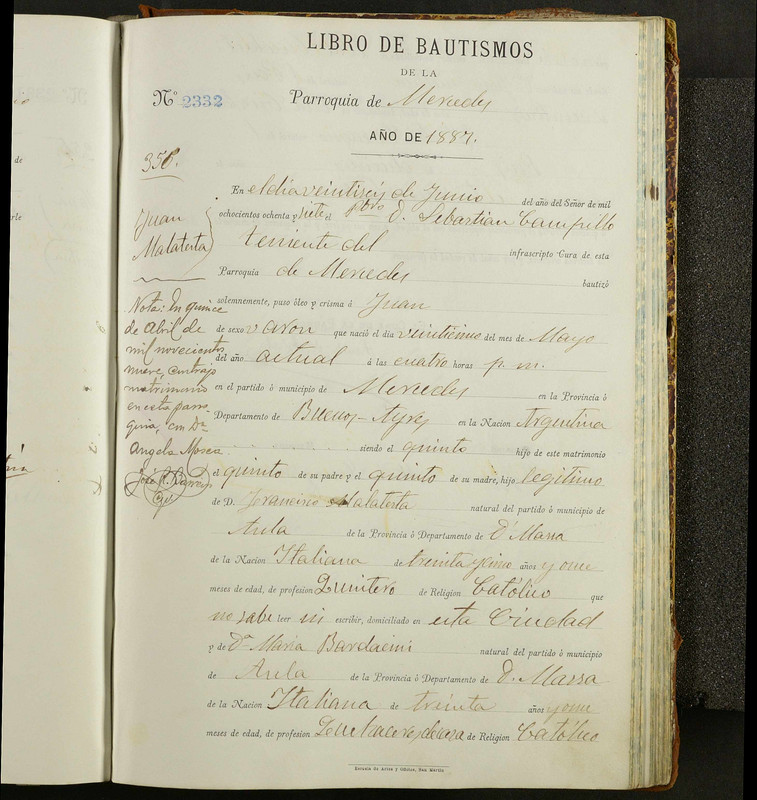 LIBRO DE BAUTISMOS
DE LA
Nº 2332
Parroquia de Mercedes
AÑO DE 1887.
358.
Juan
Malatesta
En el dia veintiseis de Junio del año del Señor de mil
ochocientos ochenta y siete el pbro D. Sebastian Campillo
teniente del infrascripto Cura de esta
Parroquia de Mercedes bautizó
solemnemente, puso óleo y crisma á Juan
de sexo varon que nació el dia veinticinco del mes de Mayo
del año actual á las cuatro horas p. m.
en el partido ó municipio de Mercedes en la Provincia ó
Departamento de Buenos-Ayres en la Nacion Argentina
siendo el quinto hijo de este matrimonio
el quinto de su padre y el quinto de su madre, hijo legitimo
de D. Francisco Malatesta natural del partido ó municipio de
Aula de la Provincia ó Departamento de D. Massa
de la Nacion Italiana de treinta y cinco años y once
meses de edad, de profesion Quintero de Religion Católico que
no sabe leer ni escribir, domiciliado en esta Ciudad
y de Dª Maria Bardacini natural del partido ó municipio
de Aula de la Provincia ó Departamento de D. Massa
de la Nacion Italiana de treinta años y once
meses de edad, de profesion de Religion Católico
Nota: En quince
de Abril de
mil novecientos
nueve, contrajo
matrimonio
en esta parro-
quia, con Dª
Angela Mosca
José R.
Escuela de Artes y Oficios, San Martin